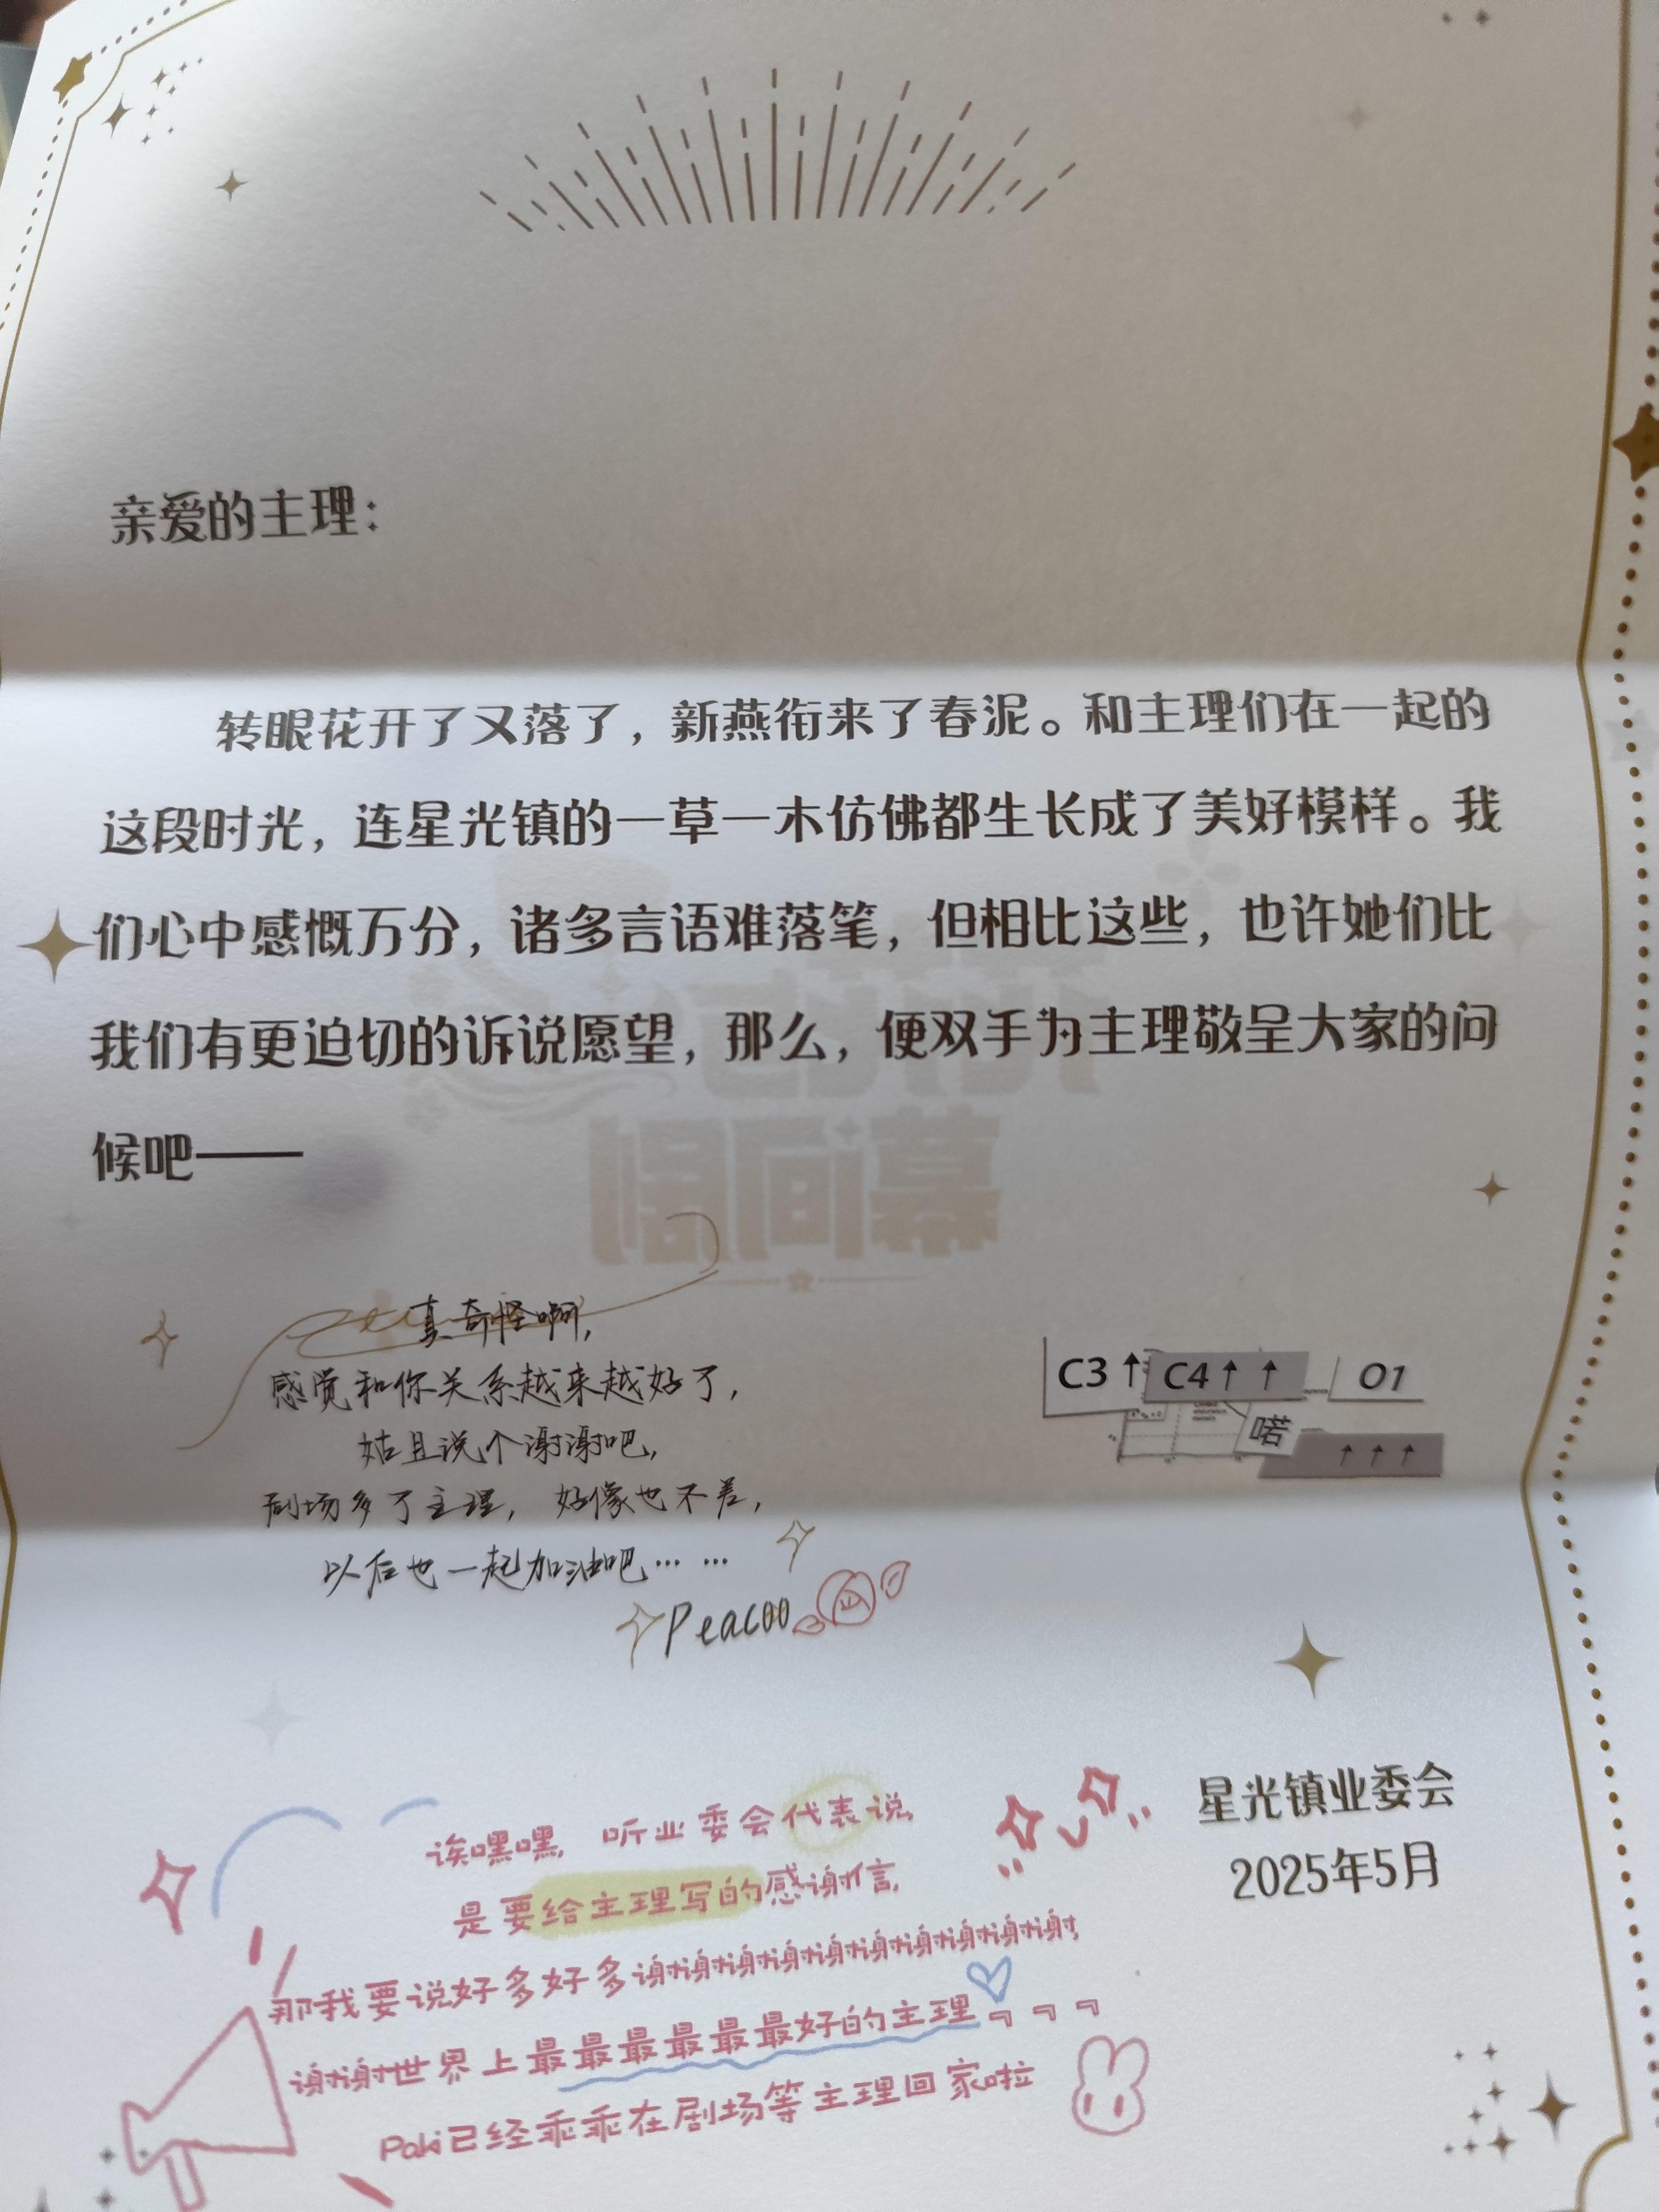 亲爱的主理：
转眼花开了又落了，新燕衔来了春泥。和主理们在一起的
这段时光，连星光镇的一草一木仿佛都生长成了美好模样。我
们心中感慨万分，诸多言语难落笔，但相比这些，也许她们比
我们有更迫切的诉说愿望，那么，便双手为主理敬呈大家的问
候吧——
幕间剧
真奇怪啊，
感觉和你关系越来越好了，
姑且说个谢谢吧，
剧场多了主理，好像也不差，
以后也一起加油吧……
Peacoo
C3↑ C4↑ ↑ O1
喏 ↑ ↑ ↑
星光镇业委会
2025年5月
诶嘿嘿，听业委会代表说，
是要给主理写的感谢信，
那我要说好多好多谢谢谢谢谢谢谢谢谢谢，
谢谢世界上最最最最最最好的主理~ ~ ~
Paki已经乖乖在剧场等主理回家啦